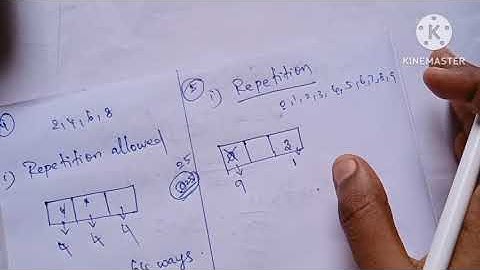 KINEMASTER
4
2,4,6,8
i) Repetition allowed
4
4 4 4
64 ways.
5
i) Repetition
0,1,2,3,4,5,6,7,8,9
25
0 3
9 1